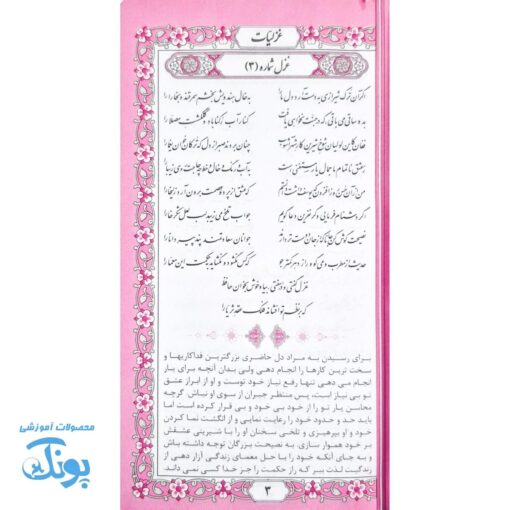 غزلیات
غزل شماره (۳)
اگر آن ترک شیرازی به دست آرد دل ما را به خال هندویش بخشم سمرقند و بخارا را
بده ساقی می باقی که در جنت نخواهی یافت کنار آب رکناباد و گلگشت مصلا را
فغان کاین لولیان شوخ شیرین کار شهر آشوب چنان بردند صبر از دل که ترکان خوان یغما را
ز عشق ناتمام ما جمال یار مستغنی است به آب و رنگ و خال و خط چه حاجت روی زیبا را
من از آن حسن روز افزون که یوسف داشت دانستم که عشق از پرده عصمت برون آرد زلیخا را
اگر دشنام فرمایی و گر نفرین دعا گویم جواب تلخ می زیبد لب لعل شکرخا را
نصیحت گوش کن جانا که از جان دوست تر دارند جوانان سعادتمند پند پیر دانا را
حدیث از مطرب و می گو و راز دهر کمتر جو که کس نگشود و نگشاید به حکمت این معما را
غزل گفتی و در سفتی بیا و خوش بخوان حافظ
که بر نظم تو افشاند فلک عقد ثریا را
برای رسیدن به مراد دل حاضری بزرگترین فداکاریها و
سخت ترین کارها را انجام دهی ولی بدان آنچه برای یار
انجام می دهی تنها رفع نیاز خود توست و او از ابراز عشق
تو بی نیاز است، پس منتظر جبران از سوی او نباش گرچه
محاسن یار تو را از خود بی خود و بی قرار کرده است اما
باید حد و حدود خود را رعایت نمایی و از انگشت نما کردن
خود و او بپرهیزی و تلخی سخنان او را با شیرینی عشقش
بر خود هموار سازی. به نصیحت بزرگان توجه داشته باش
و به جای آنکه خود را با حل معمای زندگی آزار دهی از
زندگیت لذت ببر که راز حکمت را جز خدا کسی نمی داند.
۳
محصولات آموزشی
پونک